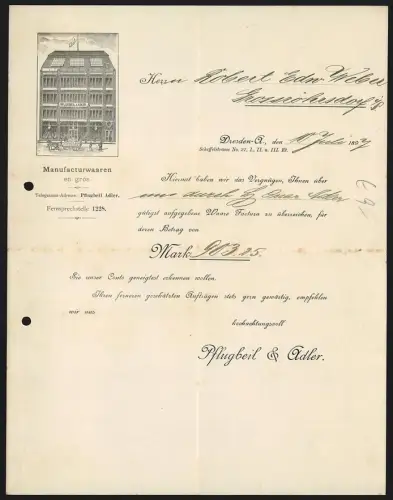 Manufacturwaaren
en gros.
Telegramm-Adresse: Pflugbeil Adler.
Fernsprechstelle 1228.
Herrn Robert Edw. Weber
Grossröhrsdorf i/S
Dresden-A., den 10 Juli 1897
Scheffelstrasse No. I., II. u. III. Et.
Hiermit haben wir das Vergnügen, Ihnen über
uns durch Hrn Adler
gütigst aufgegebene Waare Factura zu überreichen, für
deren Betrag von
Mark 963.85
Sie unser Conto geneigtest erkennen wollen.
Ihren ferneren geschätzten Aufträgen stets gern gewärtig, empfehlen
wir uns
hochachtungsvoll
Pflugbeil & Adler.